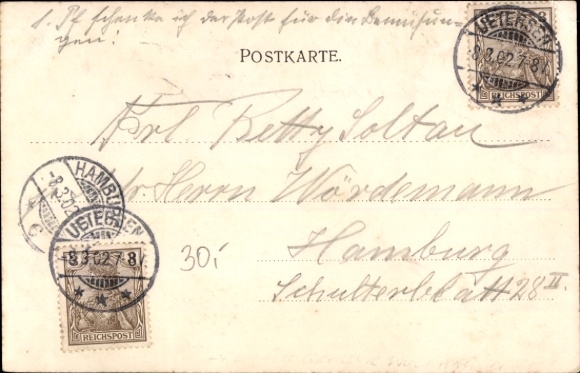 1. Pf schenke ich der Post für die Bemühun-
gen!
POSTKARTE.
UETERSEN
8.3.02.7-8V
REICHSPOST
Frl. Betty Soltau
Herrn Wördemann
Hamburg
Schulterblatt 28 II.
HAMBURG
8.3.02
C
UETERSEN
8.3.02.7-8V
REICHSPOST
30,-